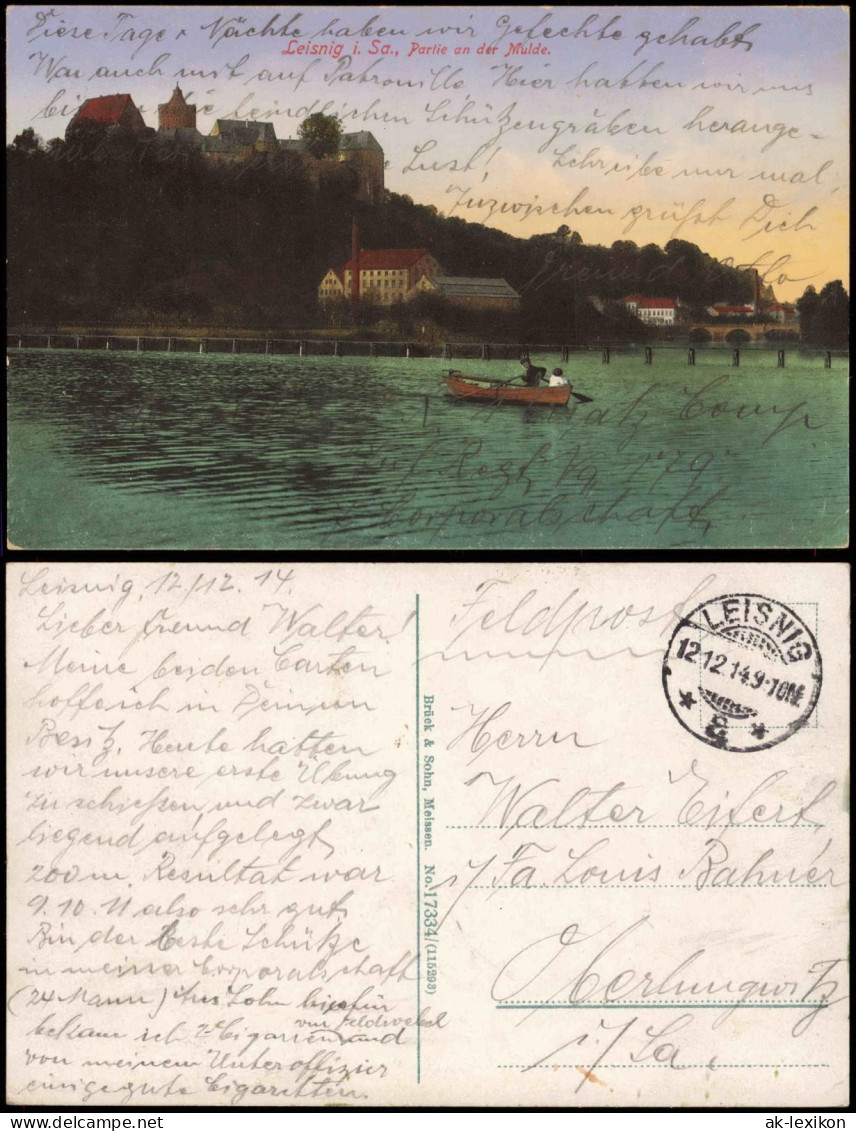 Diese Tage u Nächte haben wir Gefechte gehabt,
Leisnig i. Sa., Partie an der Mulde.
War auch mit auf Patrouille Hier hatten wir uns
feindlichen Schützengräben herange-
Lust! Schreibe nur mal,
Inzwischen grüßt Dich
Freund
Comp
Regt. No 179.
Corporalschaft,
Leisnig, 12/12. 14.
Lieber Freund Walter!
Meine beiden Carten
hoffe ich in Deinem
Besitz. Heute hatten
wir unsere erste Übung
zu schießen, und zwar
liegend aufgelegt,
200 m. Resultat war
9. 10. 11 also sehr gut,
Bin der beste Schütze
in meiner Corporalschaft
(24 Mann) Als Lohn hierfür
vom Feldwebel
bekam ich 2 Cigarren und
von meinem Unteroffizier
einige gute Cigaretten.
Brück & Sohn, Meissen. No. 17334/(115293)
Feldpost
LEISNIG
12.12.14.9-10N.
* 2 *
Herrn
Walter Eifert,
i/ Fa. Louis Bahner
Oberlungwitz
i/ Sa.
ak-lexikon